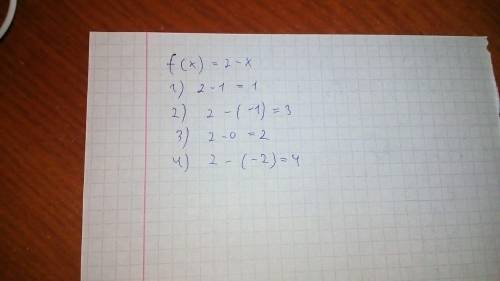 f(x) = 2 - x
1) 2 - 1 = 1
2) 2 - (-1) = 3
3) 2 - 0 = 2
4) 2 - (-2) = 4